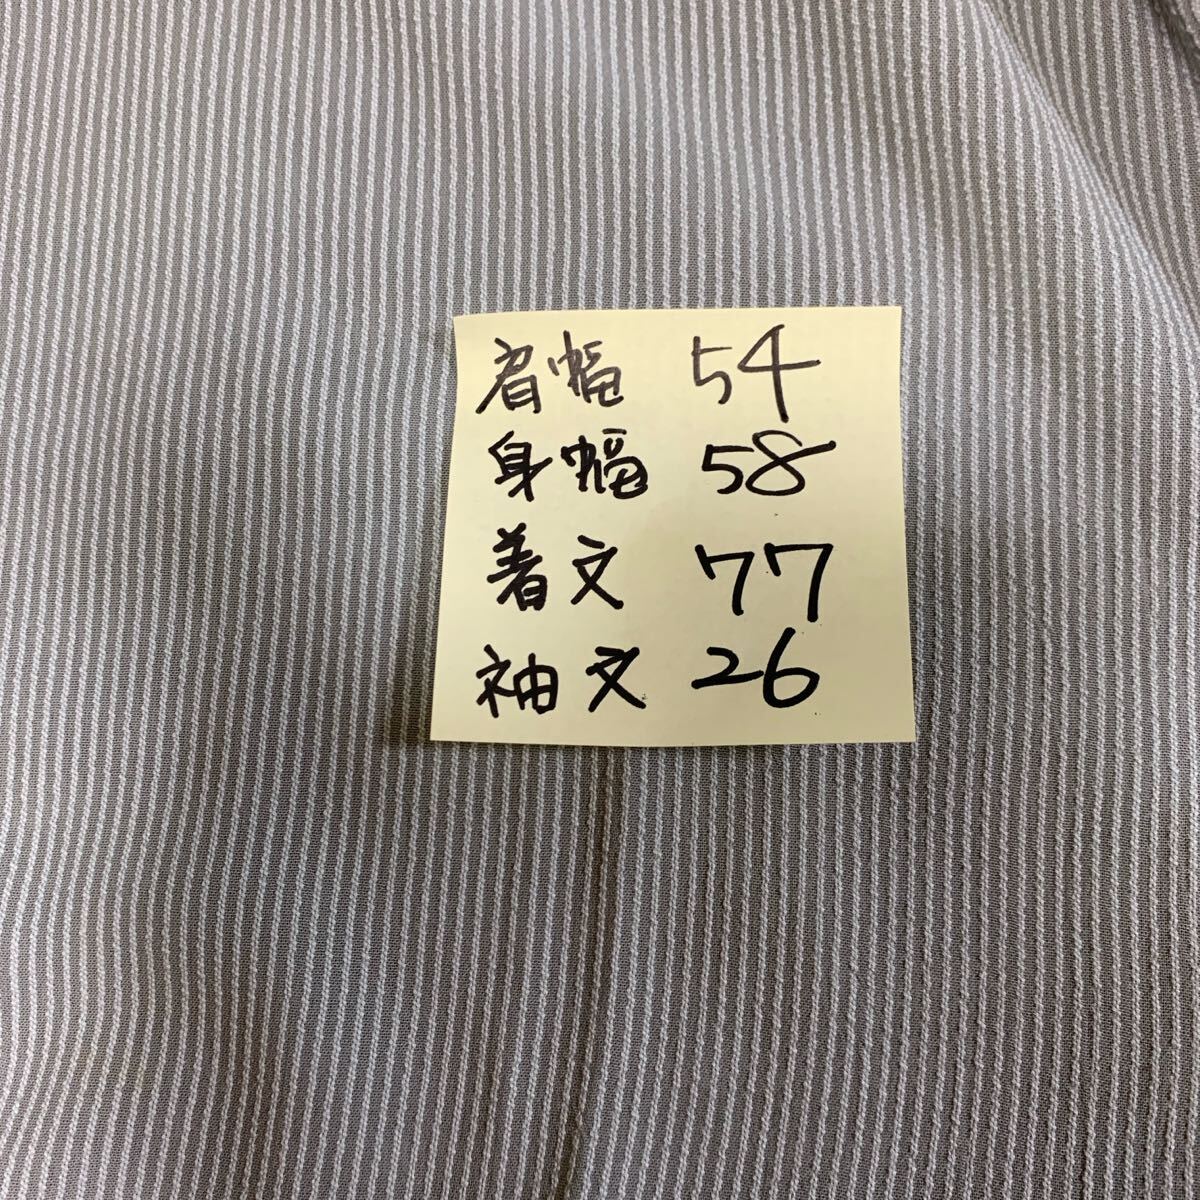 肩幅 54
身幅 58
着丈 77
袖丈 26